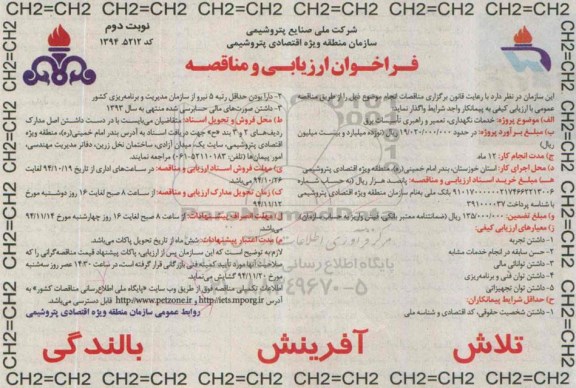 CH2=CH2 CH2=CH2 CH2=CH2 CH2=CH2 CH2=CH2 CH2=CH2 CH2=CH2 CH2=CH2
نوبت دوم
کد ۵۲۱۲، ۱۳۹۴
شرکت ملی صنایع پتروشیمی
سازمان منطقه ویژه اقتصادی پتروشیمی
فـراخـوان ارزیابی و مناقصه
این سازمان در نظر دارد با رعایت قانون برگزاری مناقصات انجام موضوع ذیل را از طریق مناقصه
عمومی با ارزیابی کیفی به پیمانکار واجد شرایط واگذار نماید:
الف) موضوع پروژه: خدمات نگهداری، تعمیر و راهبری تاسیسات برق
ب) مبلغ برآورد پروژه: در حدود ۱۹/۰۲۰/۰۰۰/۰۰۰ ریال (نوزده میلیارد و بیست میلیون
ریال)
ج) مدت انجام کار: ۱۲ ماه
د) محل اجرای کار: استان خوزستان، بندر امام خمینی(ره)، منطقه ویژه اقتصادی پتروشیمی
هـ) مبلغ خرید اسناد ارزیابی و مناقصه: پانصد هزار ریال (به حساب شماره
بانک ملی بنام سازمان منطقه ویژه اقتصادی پتروشیمی
با شناسه پرداخت ۳۹۱۰۰۰۰۳۷
و) مبلغ تضمین: ۱۳۵/۰۰۰/۰۰۰ ریال (ضمانتنامه معتبر بانکی
ز) معیارهای ارزیابی کیفی:
۱- داشتن تجربه
۲- حسن سابقه در انجام خدمات مشابه
۳- داشتن توانائی مالی
۴- داشتن توان فنی و برنامه‌ریزی
۵- داشتن توان تجهیزاتی
ح) حداقل شرایط پیمانکاران:
۱- داشتن شخصیت حقوقی، کد اقتصادی و شناسه ملی
۲- دارا بودن حداقل رتبه ۵ نیرو از سازمان مدیریت و برنامه‌ریزی کشور
۳- داشتن صورت‌های مالی حسابرسی شده منتهی به سال ۱۳۹۳
ط) محل فروش و تحویل اسناد: متقاضیان می‌بایست با در دست داشتن اصل مدارک
ردیف‌های ۲ و ۳ بند «ح» جهت دریافت اسناد به آدرس بندر امام خمینی(ره)، منطقه ویژه
اقتصادی پتروشیمی، سایت یک، میدان آزادی، ساختمان نخل زرین، دفاتر مدیریت مهندسی،
امور پیمان‌ها (تلفن: ۵۲۱۱۰۱۸۳-۰۶۱) مراجعه نمایند.
ی) مهلت فروش اسناد ارزیابی و مناقصه: در ساعت‌های اداری از تاریخ ۹۴/۱۰/۱۹ لغایت
۹۴/۱۰/۲۶ می‌باشد.
ک) زمان تحویل مدارک ارزیابی و مناقصه: از ساعت ۸ صبح لغایت ۱۶ روز دوشنبه مورخ
۹۴/۱۱/۱۲
ل) مهلت تحویل پیشنهادات: از ساعت ۸ صبح لغایت ۱۶ روز چهارشنبه مورخ ۹۴/۱۱/۱۴
می‌باشد.
م) مدت اعتبار پیشنهادات: شش ماه از تاریخ تحویل پاکات می‌باشد.
لازم به توضیح است که این سازمان پس از ارزیابی، پاکات پیشنهاد قیمت مناقصه‌گرانی را که
صلاحیت آنها مورد تأیید کمیته فنی بازرگانی قرار گرفته است، در ساعت ۱۴:۳۰ عصر روز سه‌شنبه
مورخ ۹۴/۱۱/۲۰ گشایش می‌نماید.
اطلاعات تکمیلی مناقصه فوق از طریق وب سایت «پایگاه ملی اطلاع‌رسانی مناقصات کشور» به
آدرس http://iets.mporg.ir و http://www.petzone.ir قابل دسترسی می‌باشد.
روابط عمومی سازمان منطقه ویژه اقتصادی پتروشیمی
تلاش آفرینش بالندگی
CH2=CH2 CH2=CH2 CH2=CH2 CH2=CH2 CH2=CH2 CH2=CH2 CH2=CH2 CH2=CH2